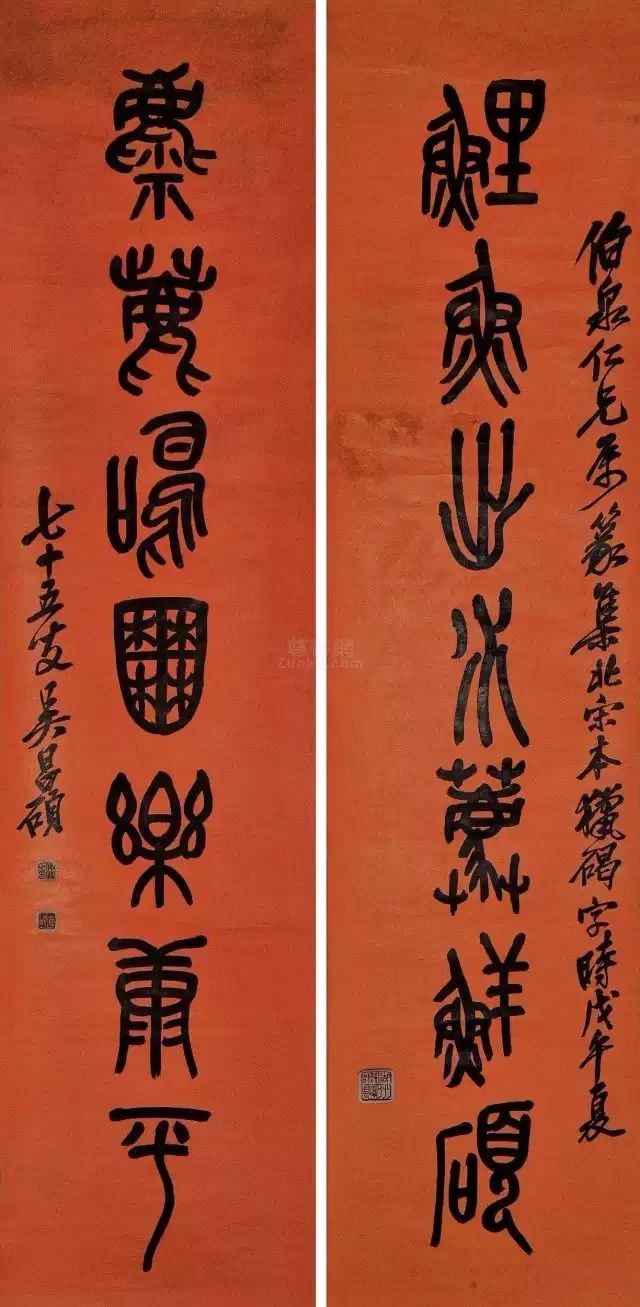 鯉魚出水薦鮮碩
伯泉仁兄屬篆集北宋本獵碣字時戊午夏
麋鹿囿樂康平
七十五叟吳昌碩
Zunke.com